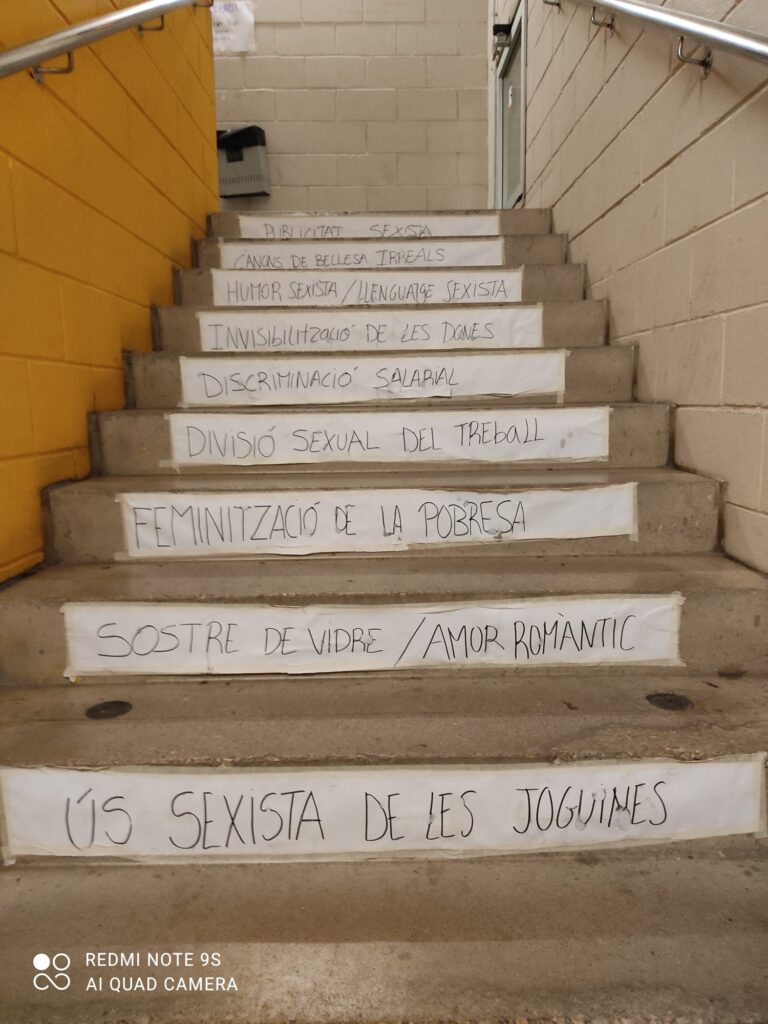 PUBLICITAT SEXISTA
CÀNONS DE BELLESA IRREALS
HUMOR SEXISTA / LLENGUATGE SEXISTA
INVISIBILITZACIÓ DE LES DONES
DISCRIMINACIÓ SALARIAL
DIVISIÓ SEXUAL DEL TREBALL
FEMINITZACIÓ DE LA POBRESA
SOSTRE DE VIDRE / AMOR ROMÀNTIC
ÚS SEXISTA DE LES JOGUINES
REDMI NOTE 9S
AI QUAD CAMERA